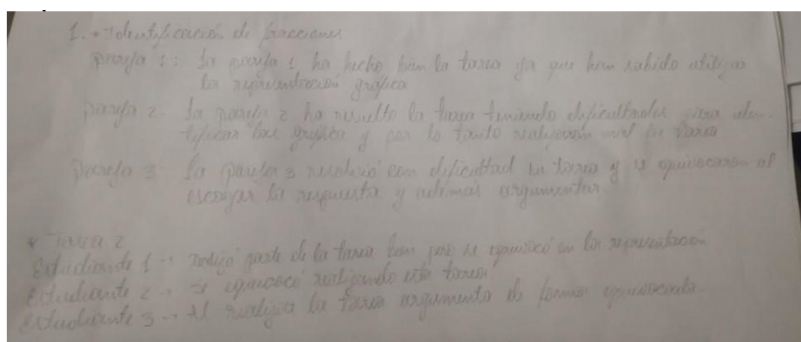 1. • Identificación de fracciones
pareja 1: La pareja 1 ha hecho bien la tarea ya que han sabido utilizar
la representación gráfica
pareja 2- La pareja 2 ha resuelto la tarea teniendo dificultades para iden-
tificar la gráfica y por lo tanto realizaron mal la tarea
Pareja 3 La pareja 3 resolvió con dificultad la tarea y se equivocaron al
escoger la respuesta y además argumentar.
* Tarea 2
Estudiante 1 → realizó parte de la tarea bien pero se equivocó en la representación
Estudiante 2 → se equivocó realizando esta tarea
Estudiante 3 → Al realizar la tarea argumento de forma equivocada.